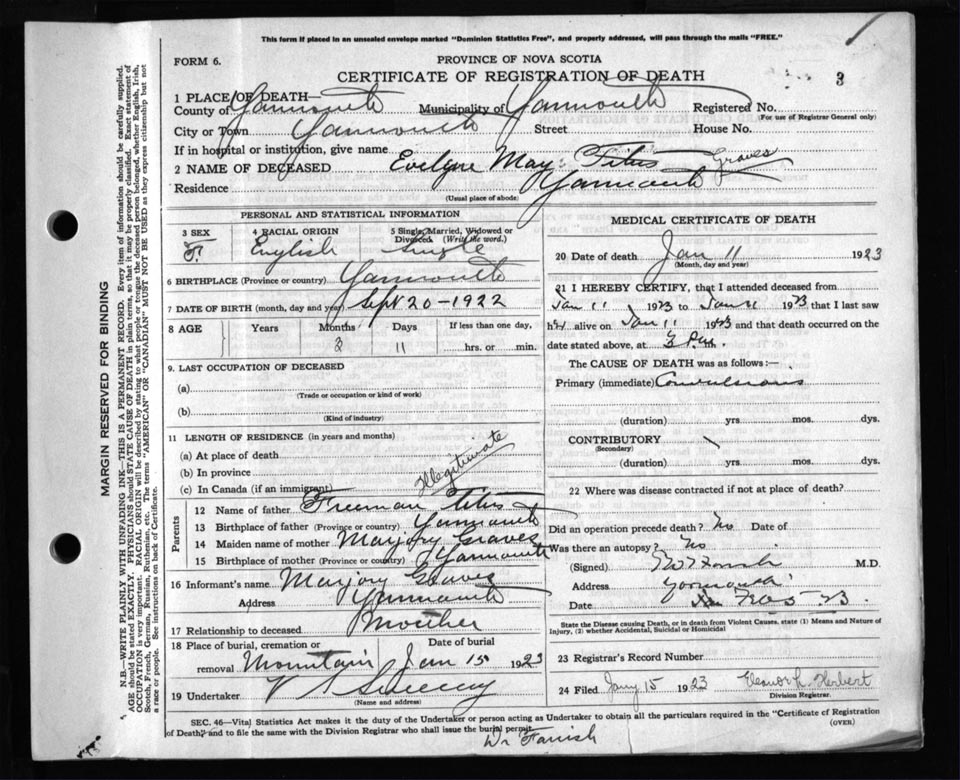 This form if placed in an unsealed envelope marked "Dominion Statistics Free", and properly addressed, will pass through the mails "FREE."
FORM 6.
PROVINCE OF NOVA SCOTIA
CERTIFICATE OF REGISTRATION OF DEATH
3
1 PLACE OF DEATH—
County of Yarmouth Municipality of Yarmouth Registered No.
(For use of Registrar General only)
City or Town Yarmouth Street House No.
If in hospital or institution, give name
2 NAME OF DECEASED Evelyne May Titus Graves
Residence Yarmouth
(Usual place of abode)
PERSONAL AND STATISTICAL INFORMATION
3 SEX 4 RACIAL ORIGIN 5 Single, Married, Widowed or Divorced (Write the word.)
F. English Single
6 BIRTHPLACE (Province or country) Yarmouth
7 DATE OF BIRTH (month, day and year) Sept 20-1922
8 AGE Years Months Days If less than one day,
3 11 hrs. or min.
9. LAST OCCUPATION OF DECEASED
(a)
(Trade or occupation or kind of work)
(b)
(Kind of industry)
11 LENGTH OF RESIDENCE (in years and months)
(a) At place of death
(b) In province
(c) In Canada (if an immigrant)
Illegitimate
Parents
12 Name of father Freeman Titus
13 Birthplace of father (Province or country) Yarmouth
14 Maiden name of mother Marjory Graves
15 Birthplace of mother (Province or country) Yarmouth
16 Informant's name Marjory Graves
Address Yarmouth
17 Relationship to deceased Mother
18 Place of burial, cremation or removal Date of burial
Mountain Jan 15 1923
19 Undertaker V S Sweeny
(Name and address)
MEDICAL CERTIFICATE OF DEATH
20 Date of death Jan 11 1923
(Month, day and year)
21 I HEREBY CERTIFY, that I attended deceased from
Jan 11 1923 to Jan 11 1923 that I last saw
her alive on Jan 11 1923 and that death occurred on the
date stated above, at 3 P.m.
The CAUSE OF DEATH was as follows:—
Primary (immediate) Convulsions
(duration) yrs. mos. dys.
CONTRIBUTORY
(Secondary)
(duration) yrs. mos. dys.
22 Where was disease contracted if not at place of death?
Did an operation precede death? No Date of
Was there an autopsy? No
(Signed) M.D.
Address Yarmouth
Date
State the Disease causing Death, or in death from Violent Causes, state (1) Means and Nature of Injury, (2) whether Accidental, Suicidal or Homicidal
23 Registrar's Record Number
24 Filed Jany 15 1923 Eleanor L. Herbert
Division Registrar.
SEC. 46—Vital Statistics Act makes it the duty of the Undertaker or person acting as Undertaker to obtain all the particulars required in the "Certificate of Registration
of Death," and to file the same with the Division Registrar who shall issue the burial permit.
(OVER)
Dr Farish
MARGIN RESERVED FOR BINDING
N.B.—WRITE PLAINLY WITH UNFADING INK—THIS IS A PERMANENT RECORD. Every item of information should be carefully supplied.
AGE should be stated EXACTLY. PHYSICIANS should STATE CAUSE OF DEATH in plain terms, so that it may be properly classified. Exact statement of
OCCUPATION is very important. RACIAL ORIGIN will be described by stating to what people or tongue the deceased person belonged, whether English, Irish,
Scotch, French, German, Russian, Ruthenian, etc. The terms "AMERICAN" OR "CANADIAN" MUST NOT BE USED as they express citizenship but not
a race or people. See instructions on back of Certificate.